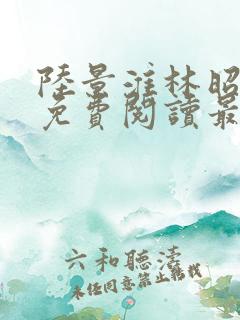 陸景淮林昭
免費閱讀最
六和聽濤
未經同意禁止轉載